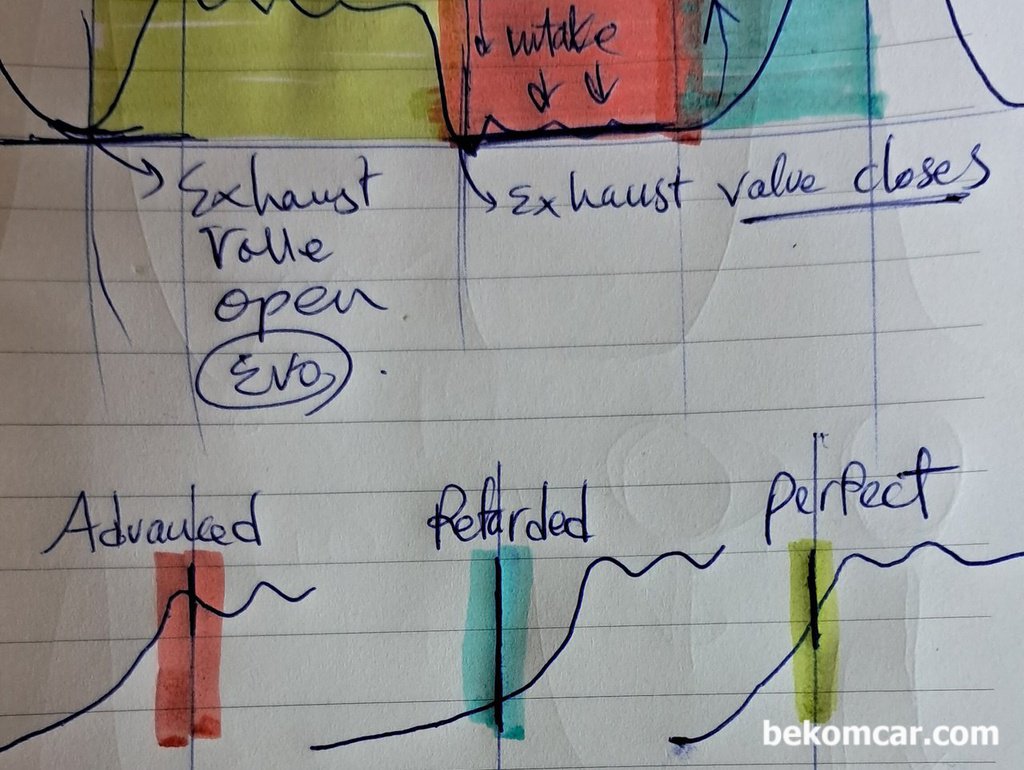 intake
Exhaust
Valve
open
EVO
Exhaust value closes
Advanced
Retarded
Perfect
bekomcar.com